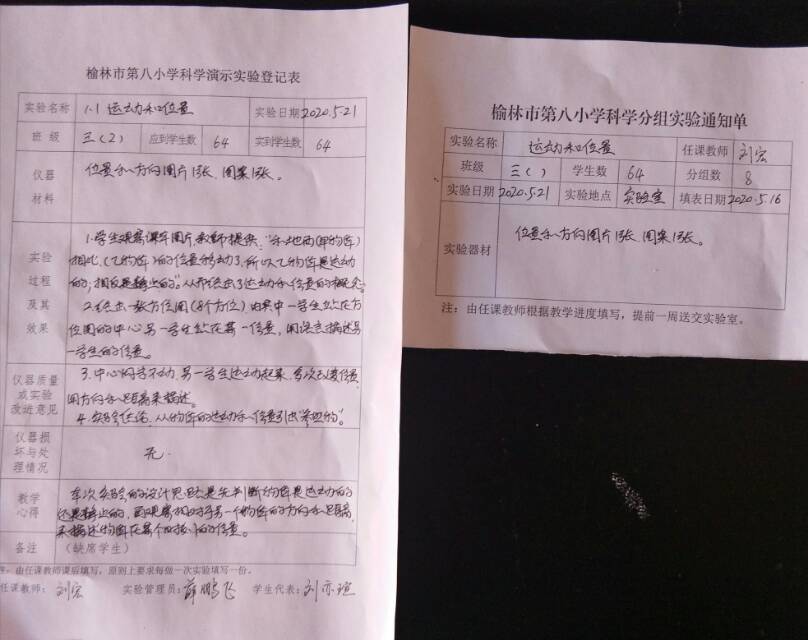 榆林市第八小学科学演示实验登记表
实验名称 1.1 运动和位置 实验日期 2020.5.21
班 级 三(2) 应到学生数 64 实到学生数 64
仪器
材料
位置和方向图片1张、图案1张。
实验
过程
及其
效果
1.学生观察课车图片,教师提示:“和地面(甲物体)
相比,(乙物体)的位置移动了,所以乙物体是运动
的,相反是静止的”。从而给出了运动和位置的概念。
2.给出一张方位图(8个方位),由其中一学生站在方
位图的中心,另一学生站在某一位置,用语言描述另
一学生的位置。
仪器质量
或实验
改进意见
3.中心同学不动,另一学生运动起来,多次改变位置,
用方向和距离来描述。
4.实验结论:从物体的运动和位置引出“参照物”。
仪器损
坏与处
理情况
无.
教学
心得
本次实验的设计思路是先判断物体是运动的
还是静止的,再观察相对于另一个物体的方向和距离,
来描述物体在某个时候的位置。
备注 (缺席学生)
注:由任课教师课后填写,原则上要求每做一次实验填写一份。
任课教师: 刘宏 实验管理员: 薛鹏飞 学生代表: 刘亦瑄
榆林市第八小学科学分组实验通知单
实验名称 运动和位置 任课教师 刘宏
班级 三( ) 学生数 64 分组数 8
实验日期 2020.5.21 实验地点 实验室 填表日期 2020.5.16
实验器材 位置和方向图片1张、图案1张。
注:由任课教师根据教学进度填写,提前一周送交实验室。